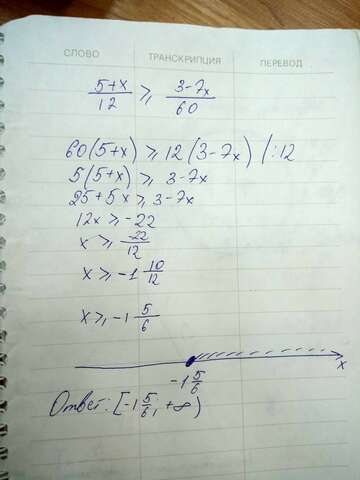 СЛОВО ТРАНСКРИПЦИЯ ПЕРЕВОД
5+x/12 ⩾ 3-7x/60
60(5+x) ⩾ 12(3-7x) /:12
5(5+x) ⩾ 3-7x
25+5x ⩾ 3-7x
12x ⩾ -22
x ⩾ -22/12
x ⩾ -1 10/12
x ⩾ -1 5/6
x
-1 5/6
Ответ: [-1 5/6; +∞)